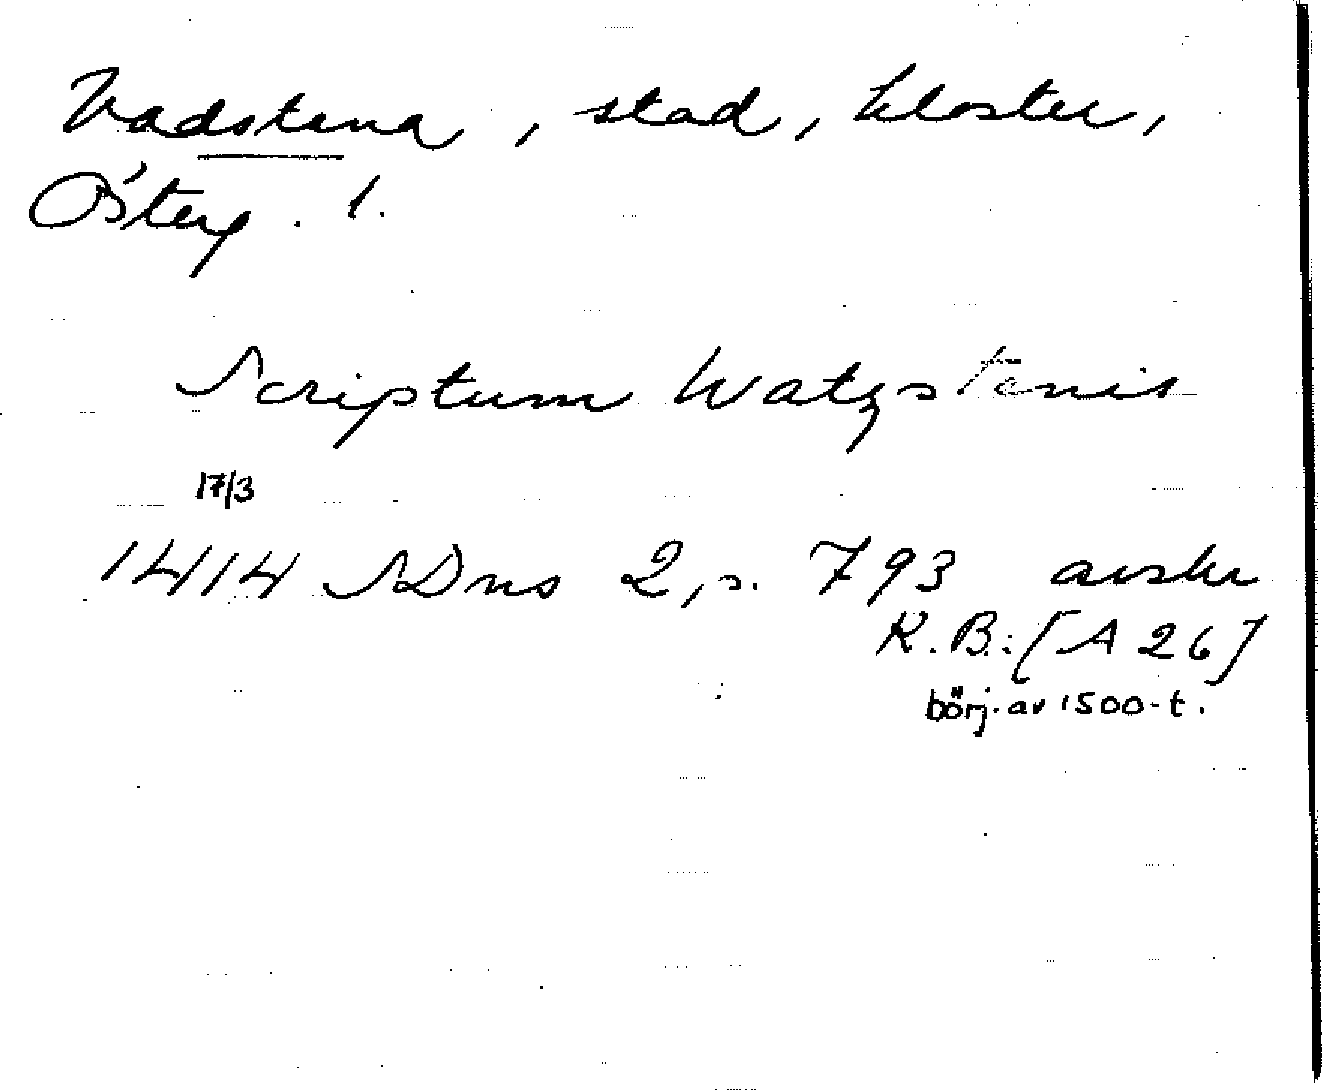 Vadstena, stad, kloster,
Österg. l.
Scriptum Watzstenis
17/3
1414 SDns 2, s. 793 avskr
K.B.: [A 26]
börj. av 1500-t.